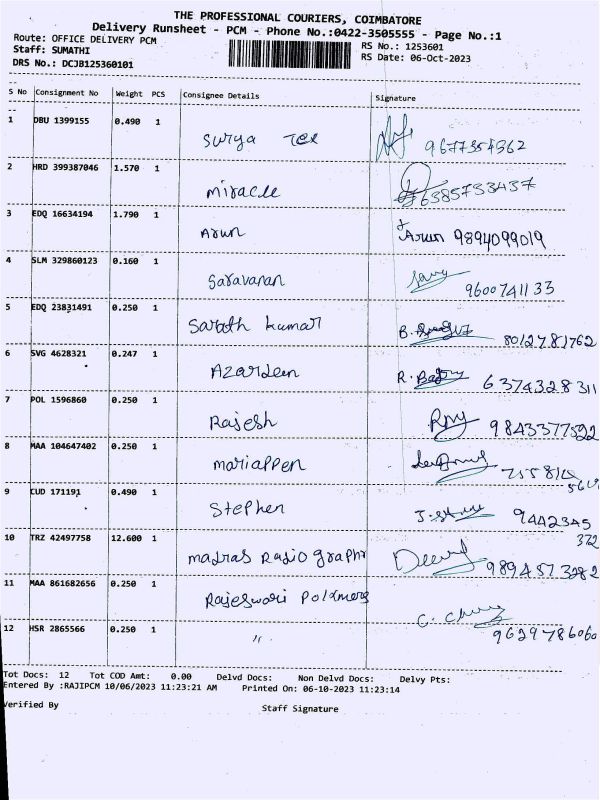 THE PROFESSIONAL COURIERS, COIMBATORE
Delivery Runsheet - PCM - Phone No.:0422-3505555 - Page No.:1
Route: OFFICE DELIVERY PCM
RS No.: 1253601
Staff: SUMATHI
RS Date: 06-Oct-2023
DRS No.: DCJB125360101
S No Consignment No Weight PCS Consignee Details Signature
1 DBU 1399155 0.490 1
Surya Tex 9677354362
2 HRD 399387046 1.570 1
Miracle 6385733437
3 EDQ 16634194 1.790 1
Arun Arun 9894099019
4 SLM 329860123 0.160 1
Saravanan 9600741133
5 EDQ 23831491 0.250 1
Sarath kumar 8012781762
6 SVG 4628321 0.247 1
Azardeen 6374328311
7 POL 1596860 0.250 1
Rajesh 9843377592
8 MAA 104647402 0.250 1
mariappen
9 CUD 171191 0.490 1
Stephen 9442345
372
10 TRZ 42497758 12.600 1
madras Radio graphr 9894573282
11 MAA 861682656 0.250 1
Rajeswari Polamers
12 HSR 2865566 0.250 1
" 9629786060
Tot Docs: 12 Tot COD Amt: 0.00 Delvd Docs: Non Delvd Docs: Delvy Pts:
Entered By :RAJIPCM 10/06/2023 11:23:21 AM Printed On: 06-10-2023 11:23:14
Verified By
Staff Signature